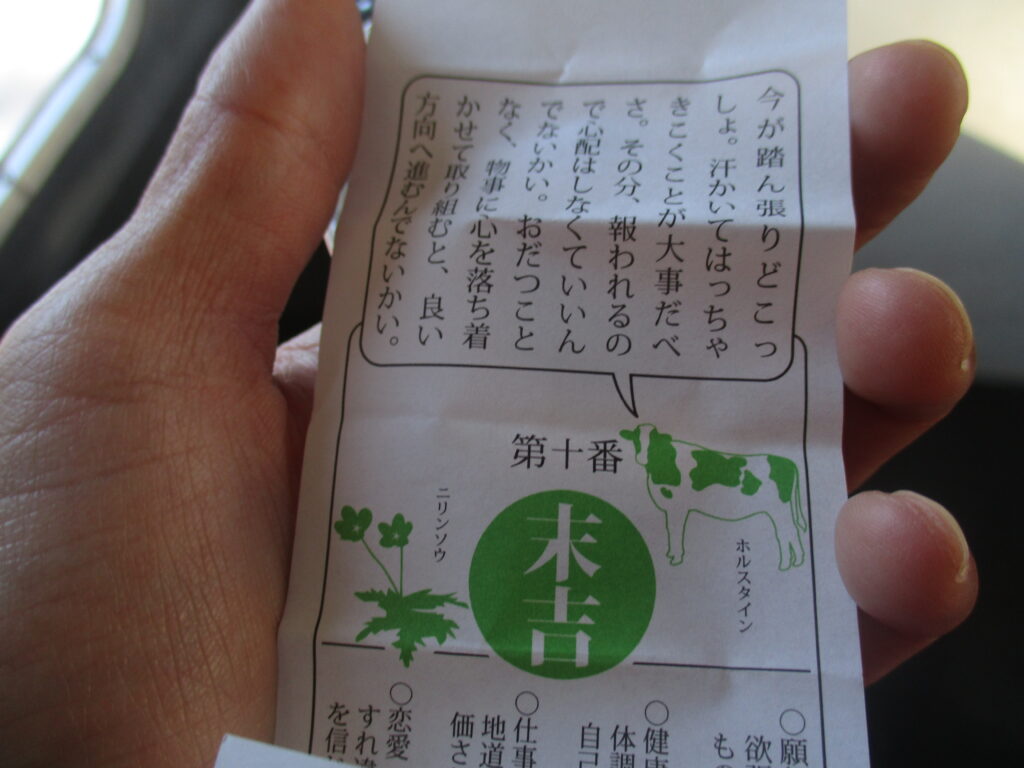 今が踏ん張りどこっ
しょ。汗かいてはっちゃ
きこくことが大事だべ
さ。その分、報われるの
で心配はしなくていいん
でないかい。おだつこと
なく、物事に心を落ち着
かせて取り組むと、良い
方向へ進むんでないかい。
第十番
ホルスタイン
末吉
ニリンソウ
○願
欲
も
○健康
体調
自己
○仕事
地道
価さ
○恋愛
すれ違
を信